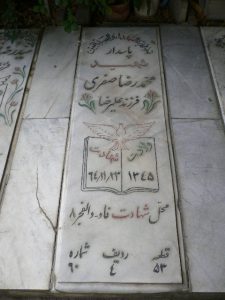 پاسدار
شهید
محمدرضا صفری
فرزند علیرضا
شهادت
۱۳۴۵
۶۴/۱۱/۲۳
محل شهادت فاو-والفجر ۸
قطعه ردیف شماره
۵۳ ۴ ۹۰